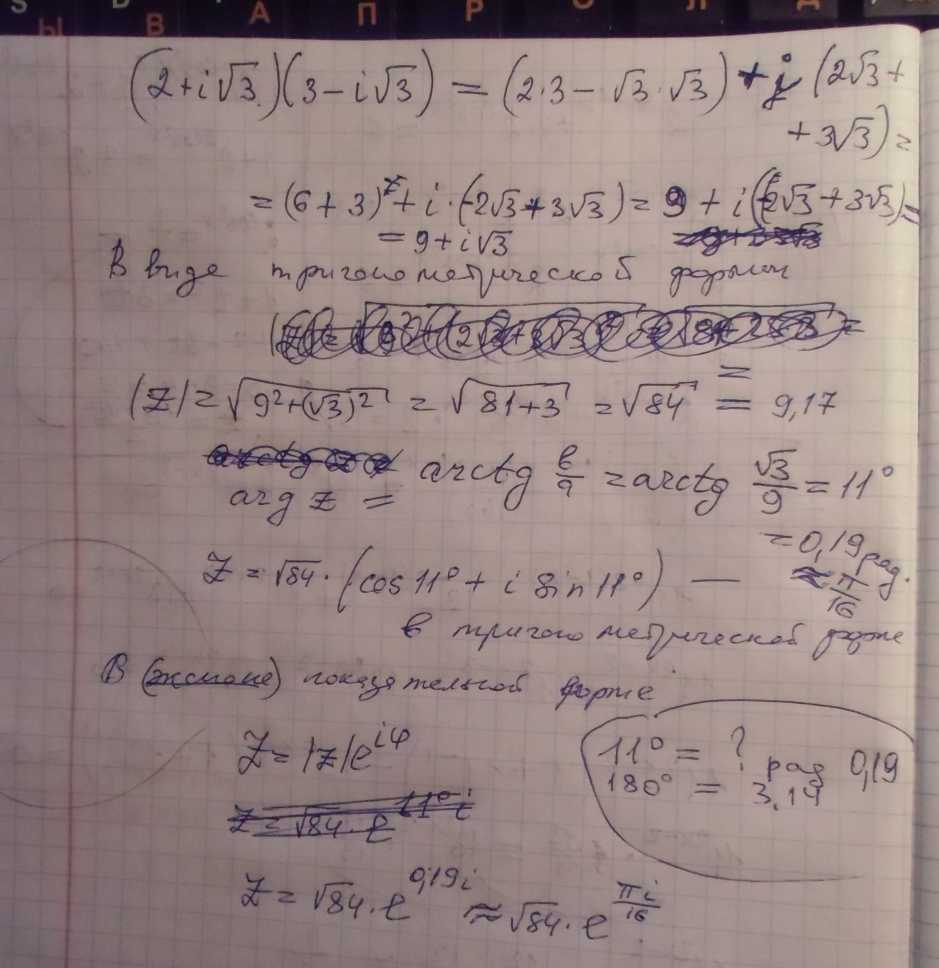 Ы В А П Р О Л Д
(2+i√3)(3−i√3) = (2·3−√3·√3) + i (2√3+
+3√3) =
= (6+3) + i·(−2√3+3√3) = 9 + i(−2√3+3√3) =
= 9+i√3
В виде тригонометрической формы
=
|Z| = √(9²+(√3)²) = √(81+3) = √84 = 9,17
arg z = arctg в/a = arctg √3/9 = 11°
= 0,19 рад.
Z = √84 · (cos 11° + i sin 11°) — ≈ π/16
в тригонометрической форме
В показательной форме
Z = |z|e^(iφ)
11° = ? рад 0,19
180° = 3.14
Z = √84 · e^(11°i)
Z = √84 · e^(0,19i) ≈ √84 · e^(πi/16)